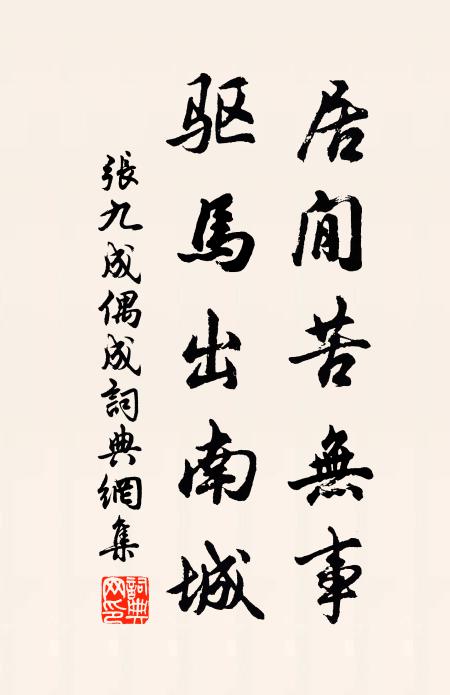 居閒苦無事
驱馬出南城
張九成偶成詞典網集
詞典网印